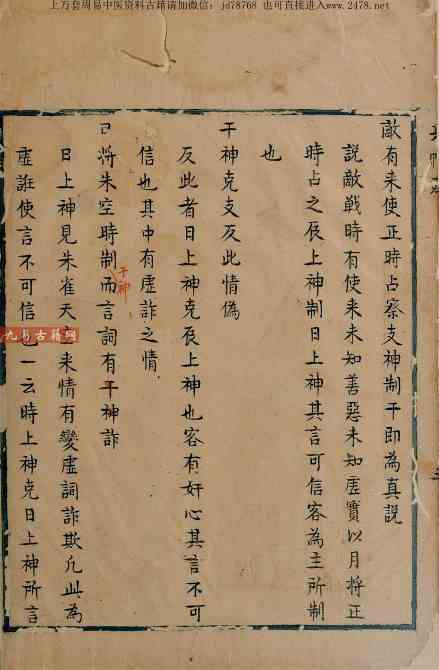 上万套周易中医资料古籍请加微信：jd78768 也可直接进入www.2478.net
敵有来使正時占察支神制干即為真説
説敵戦時有使来未知善惡未知虛實以月將正
時占之辰上神制日上神其言可信客為主所制
也
干神克支反此情偽
反此者日上神克辰上神也客有奸心其言不可
信也其中有虛詐之情
日將朱空時制而言詞有干神詐
干神
日上神見朱雀天 来情有變虛詞詐欺凢此為
虛誑使言不可信 一云時上神克日上神所言
九易古籍网